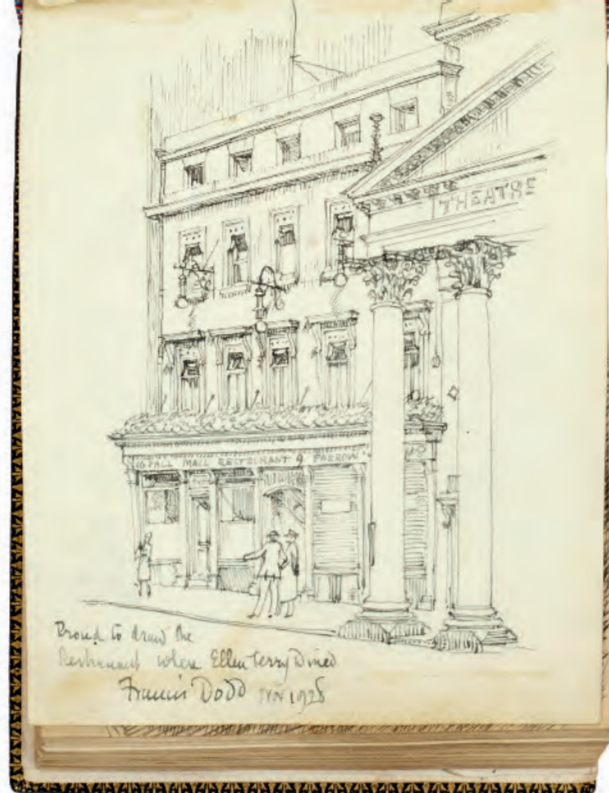 THEATRE
PALL MALL RESTAURANT
Proud to draw the
Restaurant where Ellen Terry Dined
Francis Dodd Nov 1928